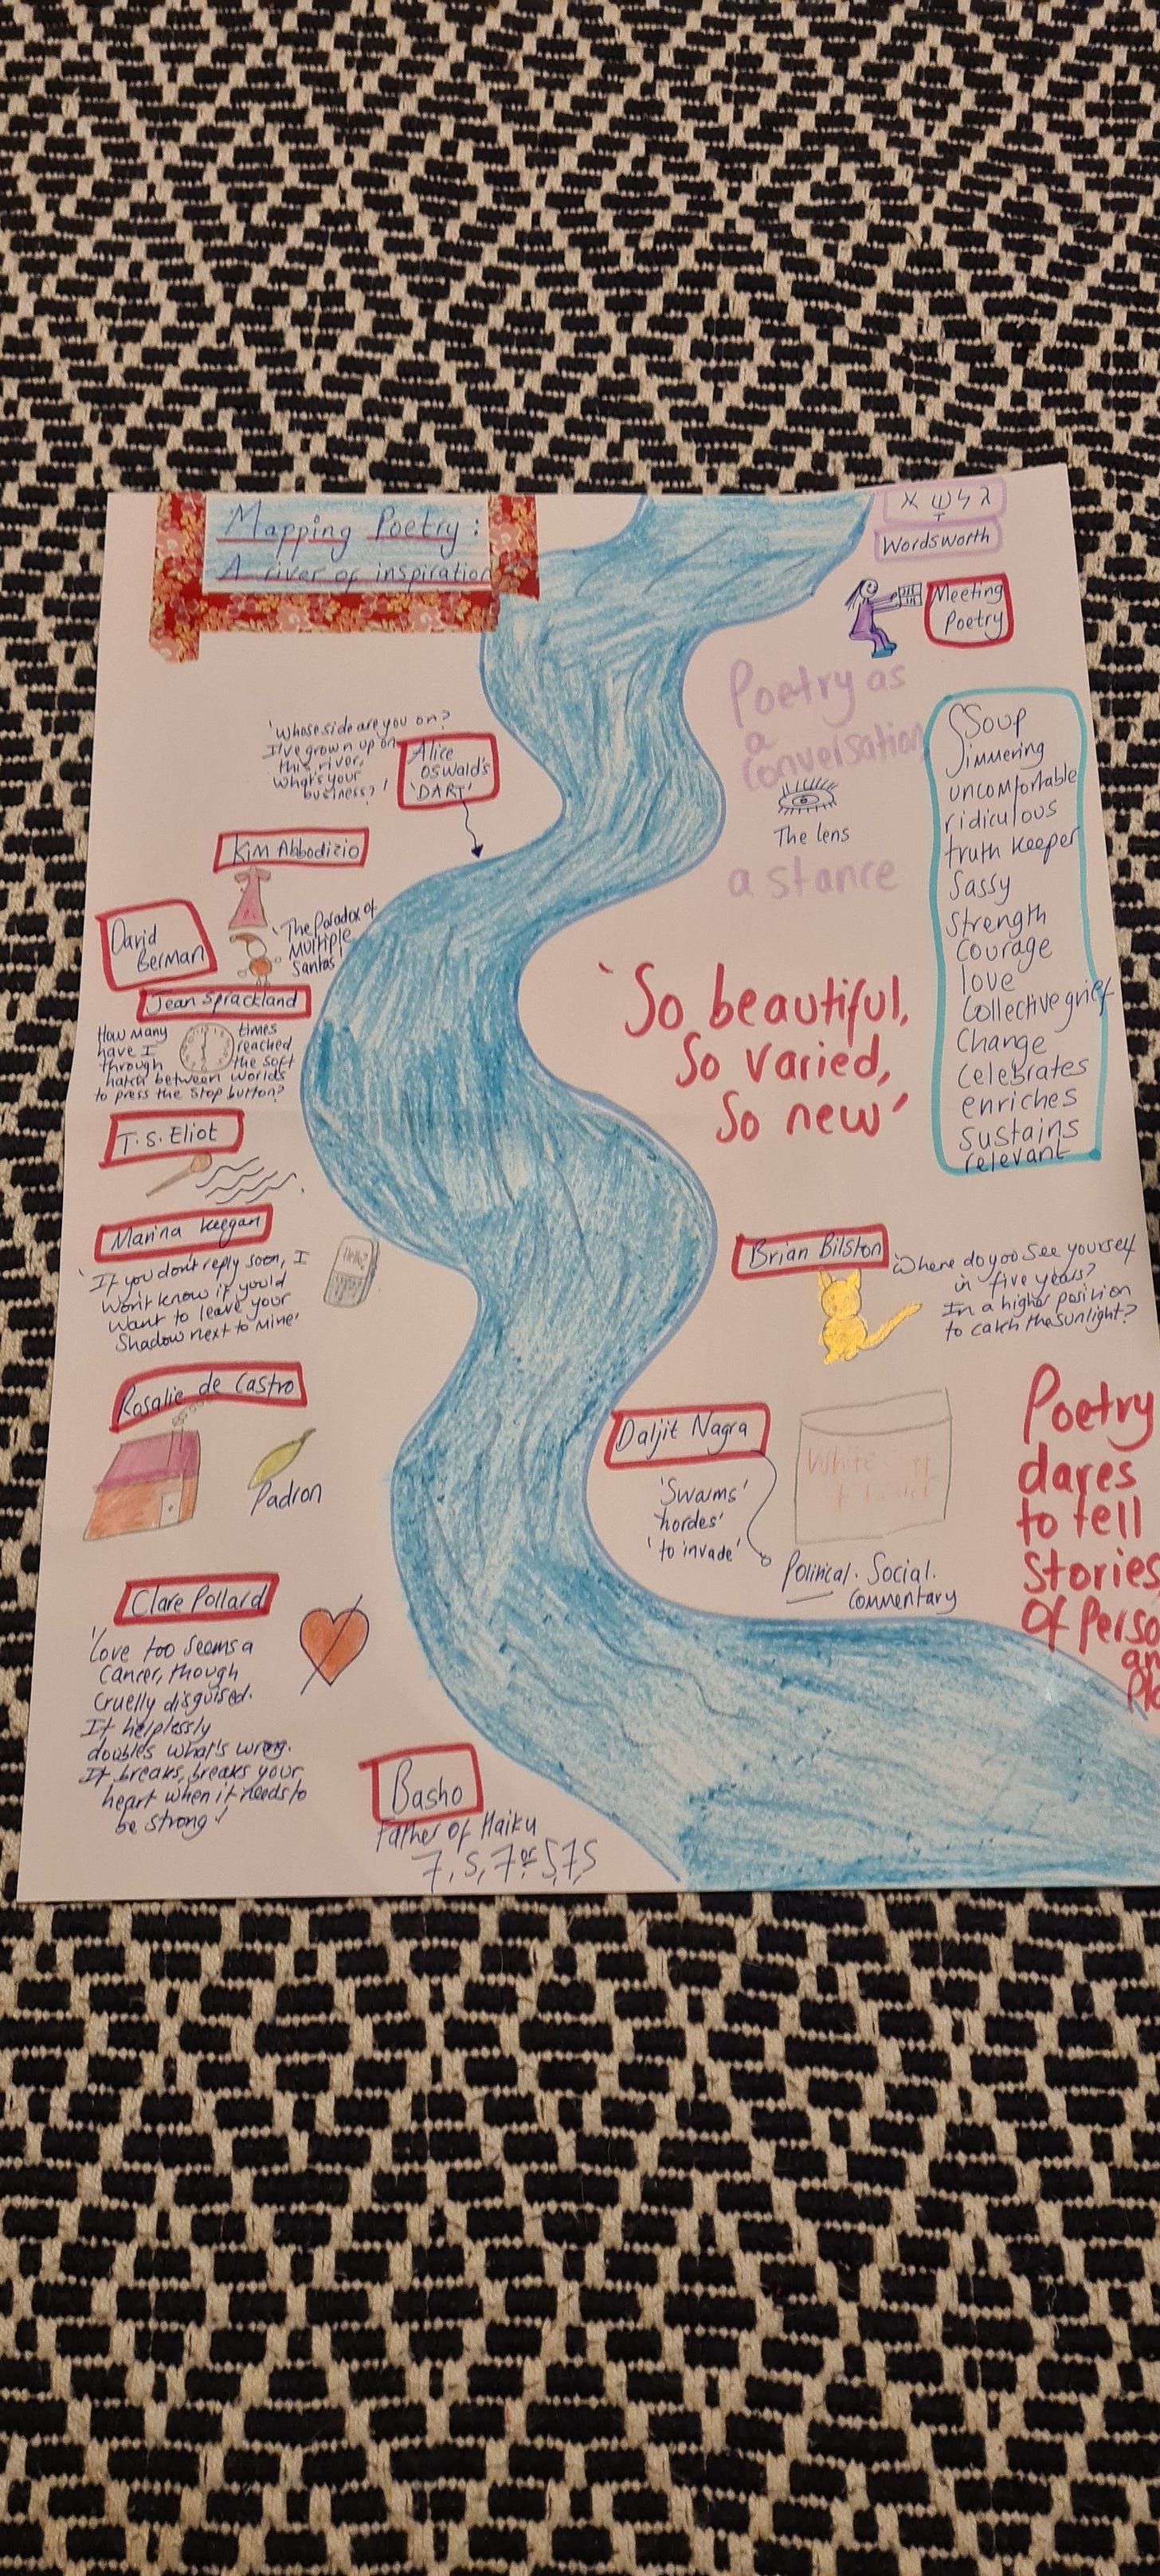 Mapping Poetry:
A river of inspiration
Wordsworth
Meeting
Poetry
Poetry as
a
conversation
The lens
a stance
Soup
Simmering
uncomfortable
ridiculous
truth keeper
Sassy
Strength
Courage
love
Collective grief
Change
Celebrates
enriches
sustains
relevant
'Whose side are you on?
I've grown up on
this river,
What's your
business?'
Alice
Oswald's
'DART'
Kim Abbodizio
David
Berman
'The Paradox of
Multiple
Santas'
Jean Sprackland
How many times
have I reached
through the soft
hatch between worlds
to press the Stop button?
'So beautiful,
So varied,
So new'
T.S. Eliot
Marina Keegan
'If you don't reply soon, I
Won't know if you'd
Want to leave your
Shadow next to Mine'
Hello?
Brian Bilston
'Where do you see yourself
in five years?
In a higher position
to catch the sunlight?
Rosalie de Castro
Padron
Daljit Nagra
'Swarms'
'hordes'
'to invade'
White
Political. Social.
Commentary
Poetry
dares
to tell
Stories
Of Perso
an
Pla
Clare Pollard
'Love too seems a
Cancer, though
Cruelly disguised.
It helplessly
doubles what's wrong.
It breaks, breaks your
heart when it needs to
be strong'
Basho
Father of Haiku
7,5,7 or 5,7,5